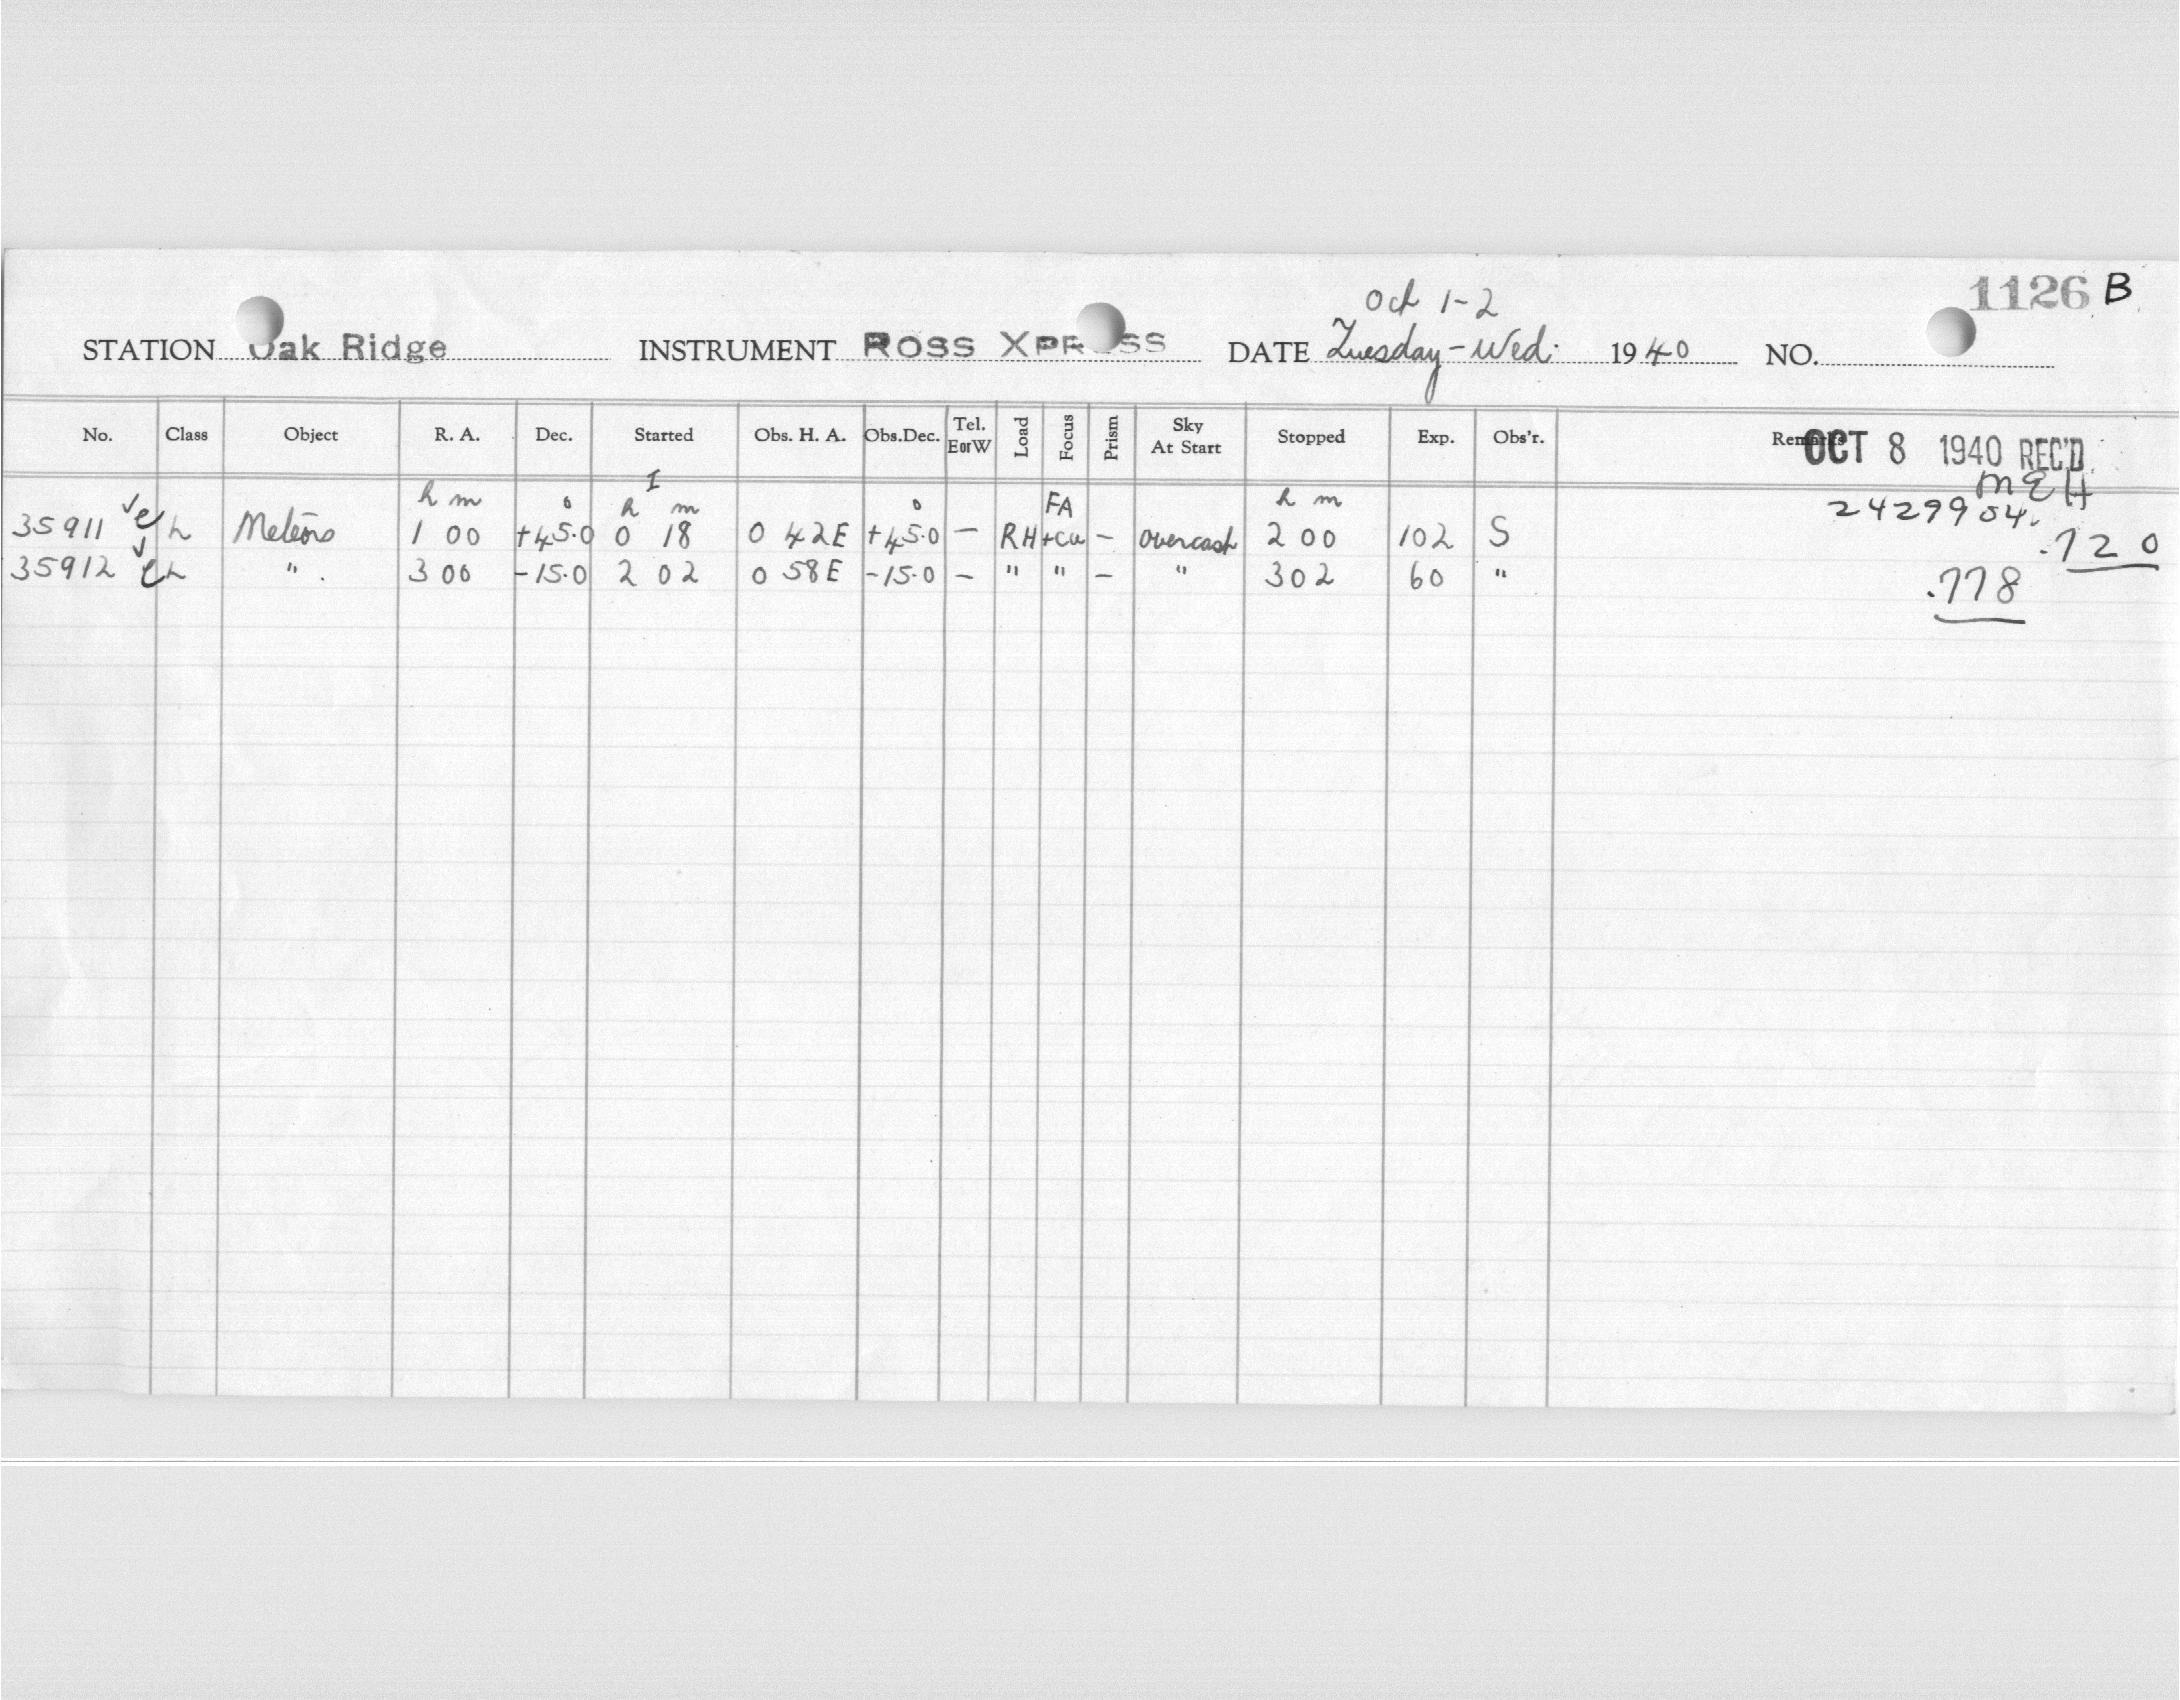 1126 B
Oct 1-2
STATION Oak Ridge INSTRUMENT ROSS XPRESS DATE Tuesday-Wed. 1940 NO.
No. Class Object R. A. Dec. Started Obs. H. A. Obs.Dec. Tel. EorW Load Focus Prism Sky At Start Stopped Exp. Obs'r. Remarks
OCT 8 1940 REC'D
MEH
I
h m ° h m ° FA h m 2429904.
35911 e L Meteors 1 00 +45.0 0 18 0 42E +45.0 - RH +Cu - Overcast 2 00 102 S .720
35912 e L " 3 00 -15.0 2 02 0 58E -15.0 - " " - " 302 60 " .778